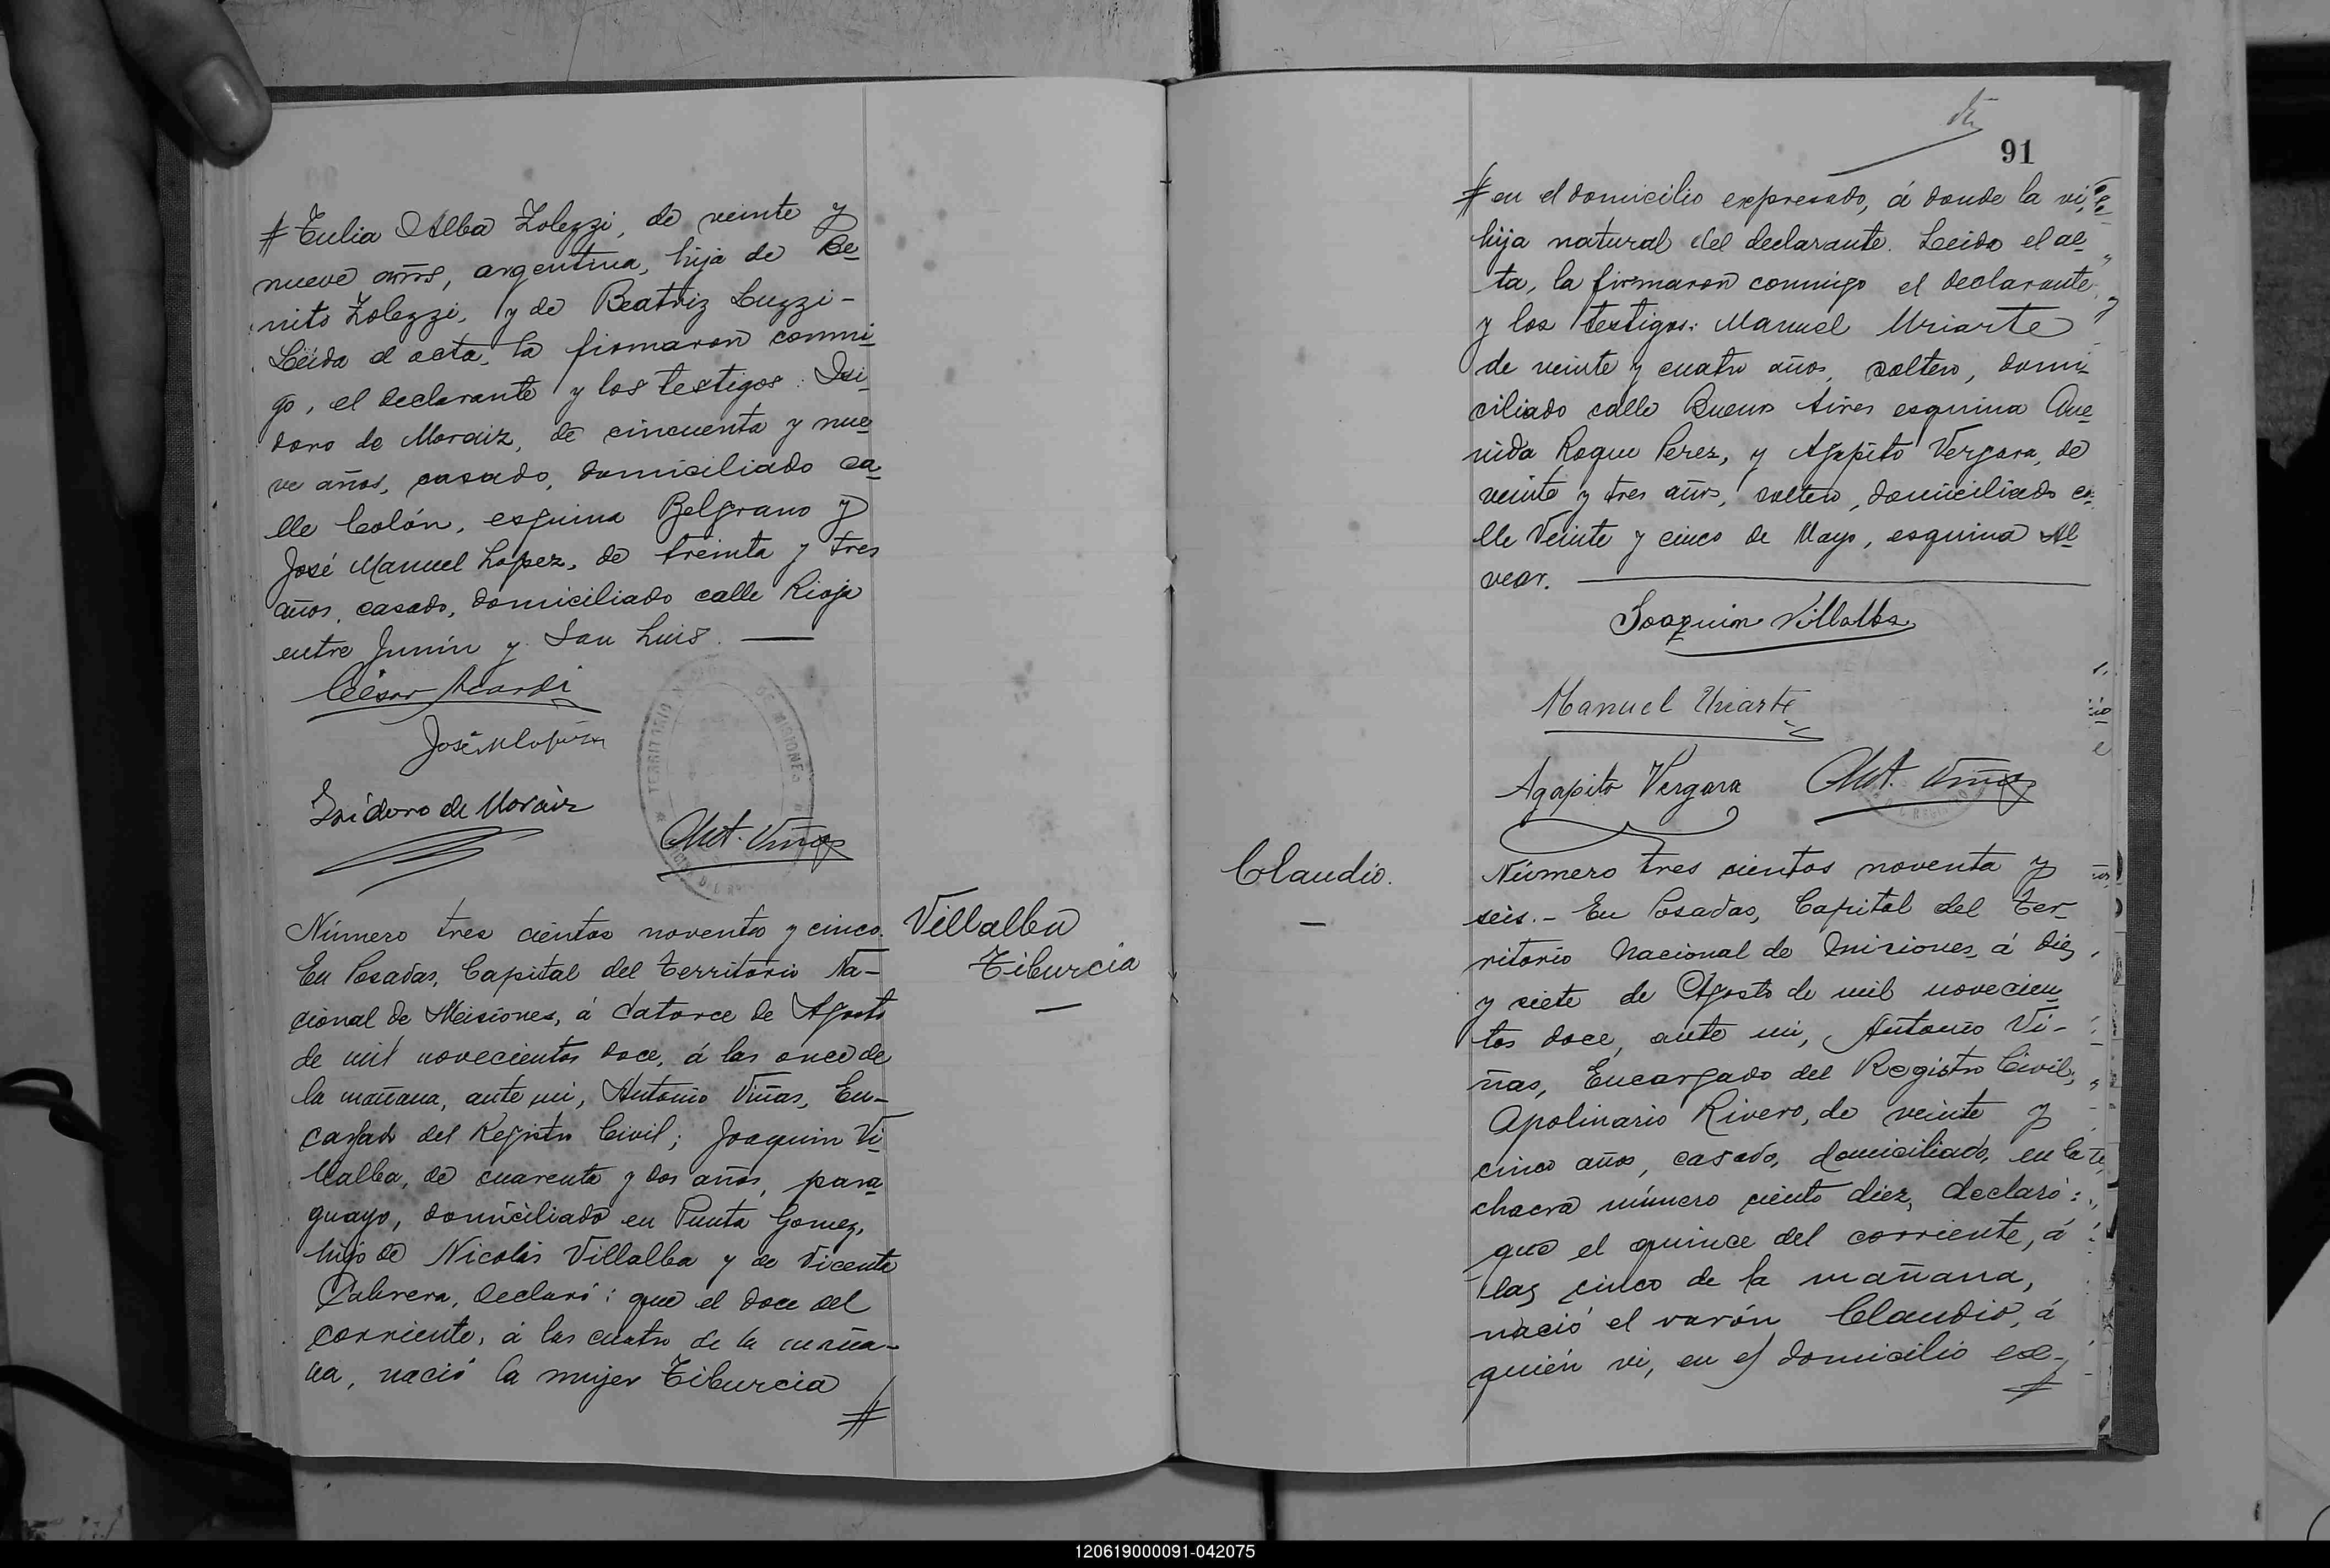 # Tulia Alba Zolezzi, de veinte y
nueve años, argentina, hija de Be
nito Zolezzi, y de Beatriz Luzzi -
Leida el acta, la firmaron conmi
go, el declarante y los testigos: Isi
doro de Moraiz, de cincuenta y nue
ve años, casado, domiciliado ca
lle Colón, esquina Belgrano y
José Manuel Lopez, de treinta y tres
años, casado, domiciliado calle Rioja
entre Junín y San Luis.
César
José M Lopez
Isidoro de Moraiz
Ant. Viñas
TERRITORIO DE MISIONES
Número tres cientos noventa y cinco.
En Posadas, Capital del Territorio Na-
cional de Misiones, á catorce de Agosto
de mil novecientos doce, á las once de
la mañana, ante mi, Antonio Viñas, En-
cargado del Registro Civil; Joaquin Vi
llalba, de cuarenta y dos años, para
guayo, domiciliado en Punta Gomez,
hijo de Nicolás Villalba y de Vicenta
Cabrera, declaró: que el doce del
corriente, á las cuatro de la maña-
na, nació la mujer Tiburcia
#
Villalba
Tiburcia
91
# en el domicilio expresado, á donde la vi,
hija natural del declarante. Leida el ac-
ta, la firmaron conmigo el declarante
y los testigos: Manuel Uriarte
de veinte y cuatro años, soltero, domi
ciliado calle Buenos Aires esquina Ave
nida Roque Perez, y Agapito Vergara, de
veinte y tres años, soltero, domiciliado ca
lle Veinte y cinco de Mayo, esquina Al
vear.
Joaquin Villalba
Manuel Uriarte
Agapito Vergara
Ant. Viñas
Claudio.
Número tres cientos noventa y
seis. - En Posadas, Capital del Ter-
ritorio Nacional de Misiones, á diez
y siete de Agosto de mil novecien
tos doce, ante mi, Antonio Vi-
ñas, Encargado del Registro Civil;
Apolinario Rivero, de veinte y
cinco años, casado, domiciliado, en la
chacra número ciento diez, declaró:
que el quince del corriente, á
las cinco de la mañana,
nació el varón Claudio, á
quién vi, en el domicilio ex-
#
120619000091-042075